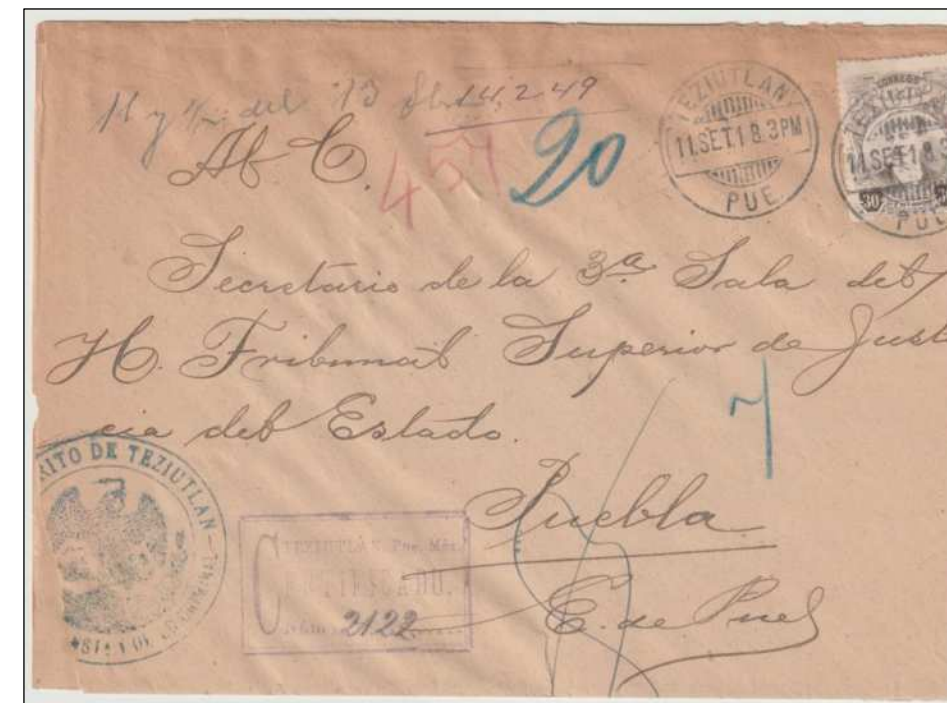 14,2 49
Al C.
457
20
TEZIUTLAN
11.SET.18.3PM
PUE.
CORREOS
TEZ
11.SET.18.3
PUE
30
Secretario de la 3ª Sala del
H. Tribunal Superior de Justi
cia del Estado.
7
Puebla
E. de Pue
RITO DE TEZIUTLAN
TEZIUTLAN, Pue. Méx.
CERTIFICADO.
2122